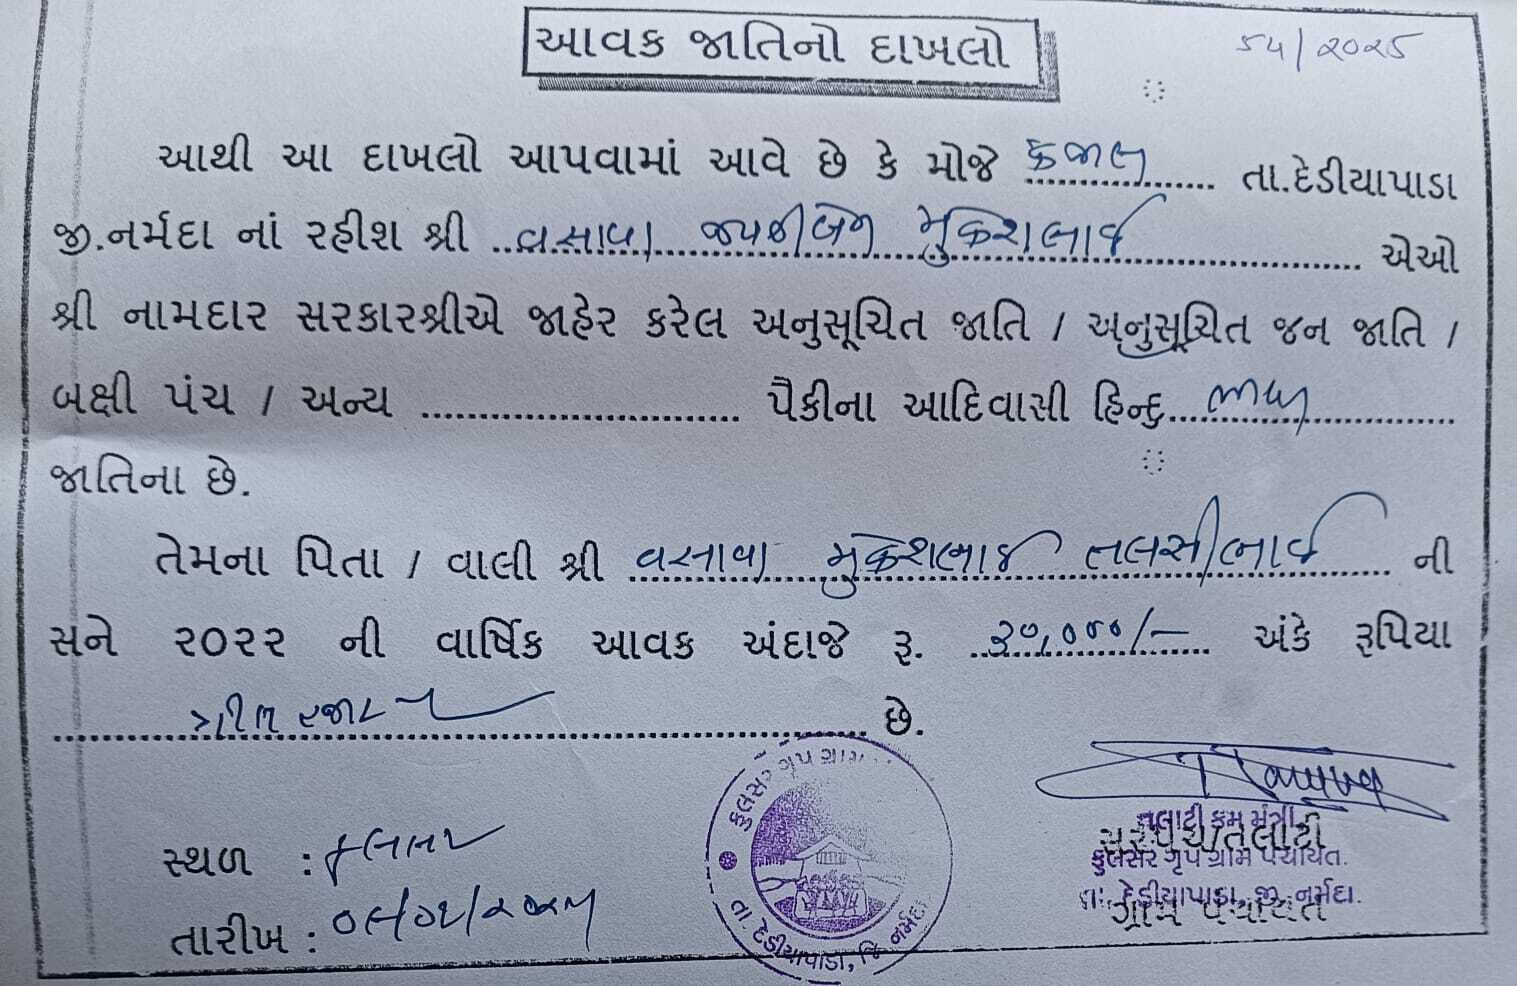 આવક જાતિનો દાખલો
૬૫/૨૦૨૫
આથી આ દાખલો આપવામાં આવે છે કે મોજે ........ તા.દેડીયાપાડા
જી.નર્મદા નાં રહીશ શ્રી ..વસાવા ........ મુકેશભાઈ........ એઓ
શ્રી નામદાર સરકારશ્રીએ જાહેર કરેલ અનુસૂચિત જાતિ / અનુસૂચિત જન જાતિ /
બક્ષી પંચ / અન્ય ............................ પૈકીના આદિવાસી હિન્દુ...ભીલ............
જાતિના છે.
તેમના પિતા / વાલી શ્રી વસાવા મુકેશભાઈ તલસીભાઈ ની
સને ૨૦૨૨ ની વાર્ષિક આવક અંદાજે રૂ. ..૩૦,૦૦૦/-.... અંકે રૂપિયા
............ત્રીસ હજાર............................ છે.
સ્થળ : કુલસર
તારીખ :
કુલસર ગૃપ ગ્રામ
તા. દેડીયાપાડા, જિ. નર્મદા
તલાટી કમ મંત્રી
સરપંચ/તલાટી
કુલસર ગૃપ ગ્રામ પંચાયત.
તા. દેડીયાપાડા, જી. નર્મદા.
ગ્રામ પંચાયત